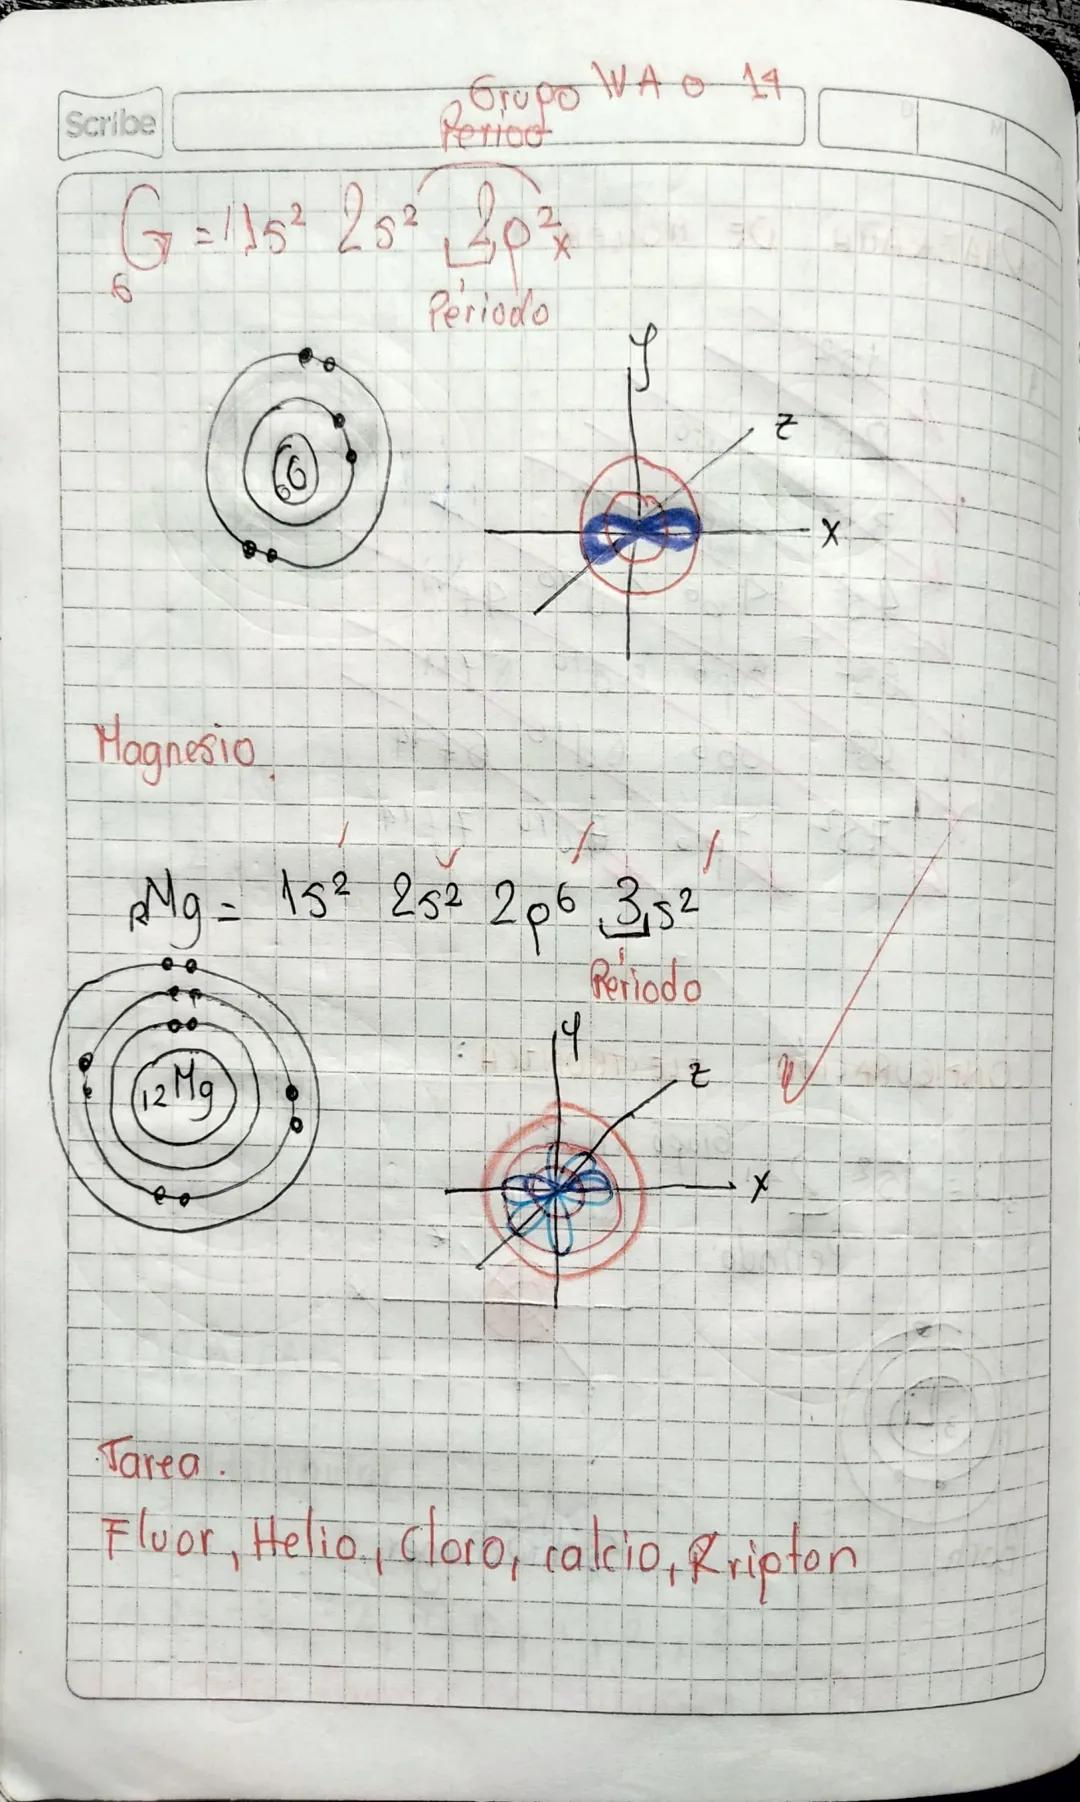 Grupo IVA o 14
Scribe
Period
6G = 1s² 2s² 2p²x
Periodo
y
z
6G
x
Magnesio.
12Mg = 1s² 2s² 2p⁶ 3s²
Periodo
y
z
12Mg
x
Tarea.
Fluor, Helio, Cloro, calcio, Kripton